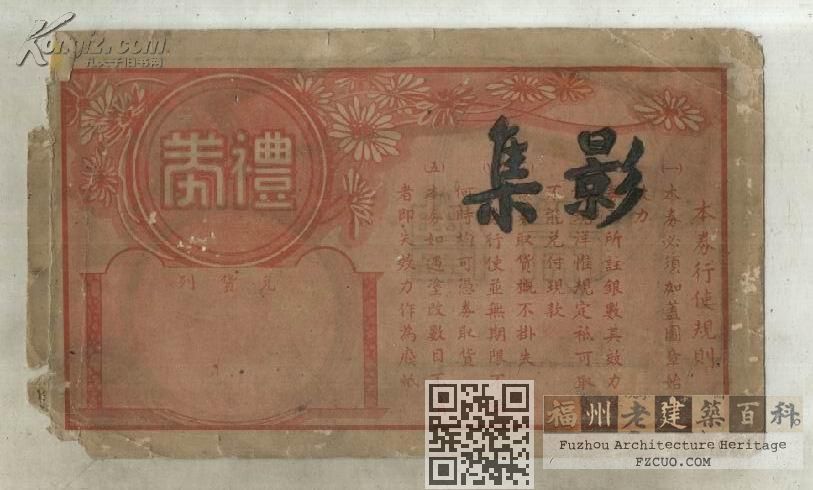 Kongfz.com
孔夫子旧书网
禮券
影集
本券行使規則
㈠本券必須加蓋圖章始
效力
所註銀數其效力
洋惟規定祗可取
不能兌付現款
取貨概不掛失
行使並無期限不
何時均可憑券取貨
㈤本券如遇塗改數目不
者即失效力作為廢紙
兌貨列
福州老建築百科
Fuzhou Architecture Heritage
FZCUO.COM